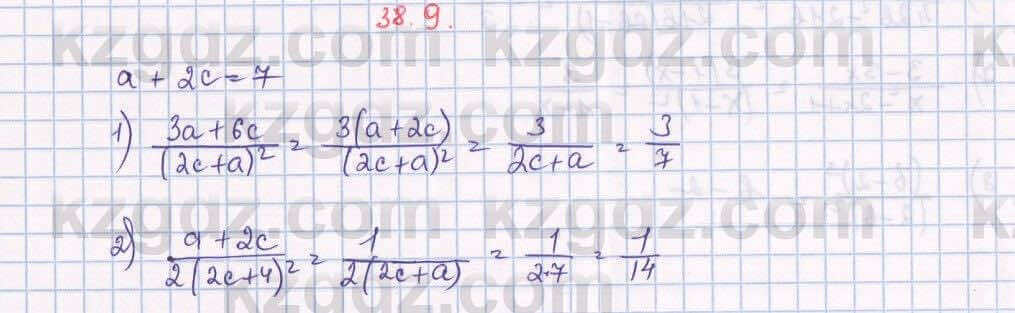 38.9.
a + 2c = 7
1) (3a + 6c)/(2c + a)² = 3(a + 2c)/(2c + a)² = 3/(2c + a) = 3/7
2) (a + 2c)/2(2c + 4)² = 1/2(2c + a) = 1/2·7 = 1/14
kzgdz.com kzgdz.com
kzgdz.com
kzgdz.com kzgdz.com
kzgdz.com